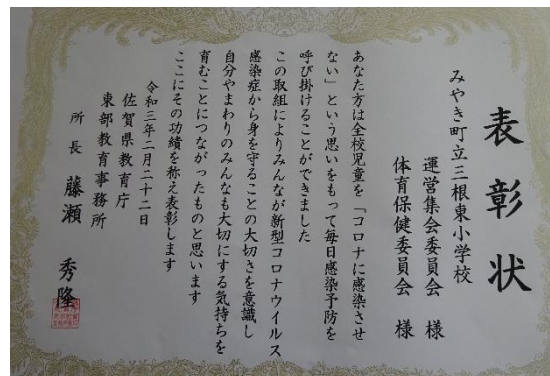 表彰状
みやき町立三根東小学校
運営集会委員会 様
体育保健委員会 様
あなた方は全校児童を「コロナに感染させ
ない」という思いをもって毎日感染予防を
呼び掛けることができました
この取組によりみんなが新型コロナウイルス
感染症から身を守ることの大切さを意識し
自分やまわりのみんなも大切にする気持ちを
育むことにつながったものと思います
ここにその功績を称え表彰します
令和三年二月二十二日
佐賀県教育庁
東部教育事務所
所長 藤瀬 秀隆